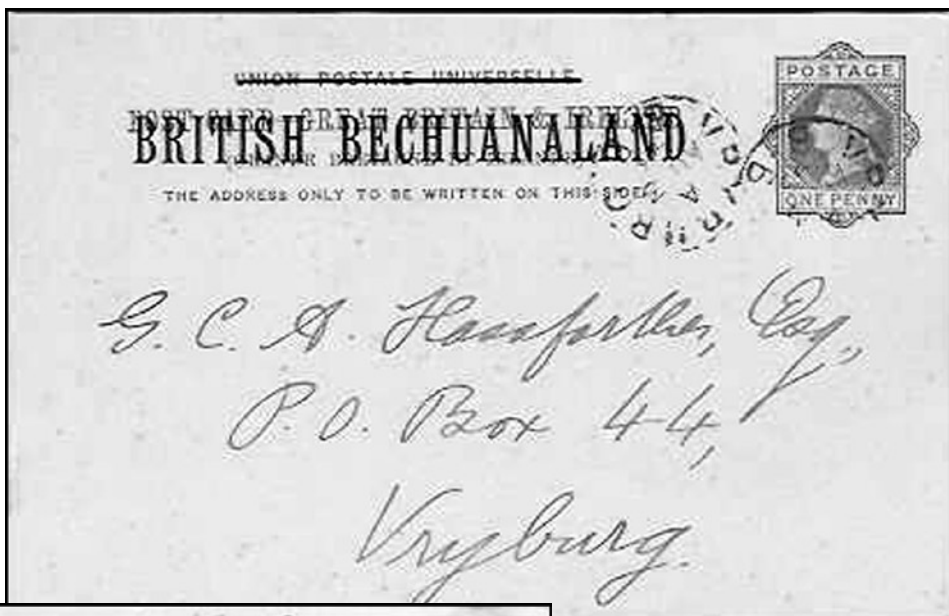 UNION POSTALE UNIVERSELLE
POST CARD GREAT BRITAIN & IRELAND
BRITISH BECHUANALAND
THE ADDRESS ONLY TO BE WRITTEN ON THIS SIDE.
POSTAGE
ONE PENNY
VRYBURG
G. C. A. Esq.,
P. O. Box 44,
Vryburg.